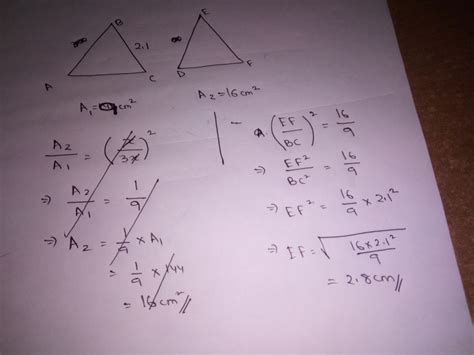 B
2.1
A
C
E
D
F
A₁ = 9 cm²
A₂ = 16 cm²
A₂/A₁ = (x/3x)²
⇒ A₂/A₁ = 1/9
⇒ A₂ = 1/9 × A₁
= 1/9 × 144
= 16 cm²
(EF/BC)² = 16/9
⇒ EF²/BC² = 16/9
⇒ EF² = 16/9 × 2.1²
⇒ EF = √(16×2.1²/9)
= 2.8 cm //